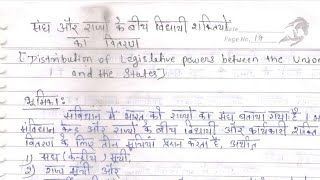 संघ और राज्यों के बीच विधायी शक्तियों
का वितरण
Page No. 19
[Distribution of Legislative powers between the Union
and the States]
भूमिका:
संविधान में भारत को राज्यों का संघ बताया गया है।
संविधान केन्द्र और राज्यों के बीच विधायी और कार्यकारी शक्तियां
वितरण के लिए तीन सूचियां प्रदान करता है, अर्थात
1) संघ (केन्द्रीय) सूची
2) राज्य सूची और